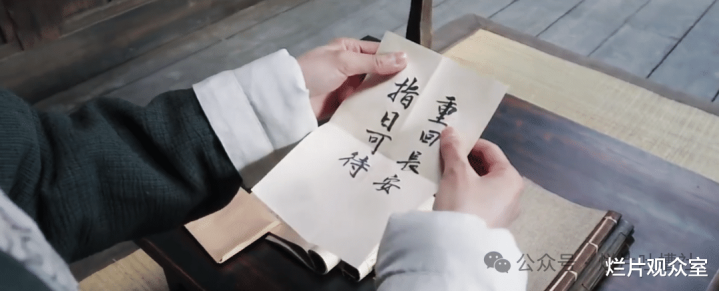 重回長安
指日可待
公众号
烂片观众室